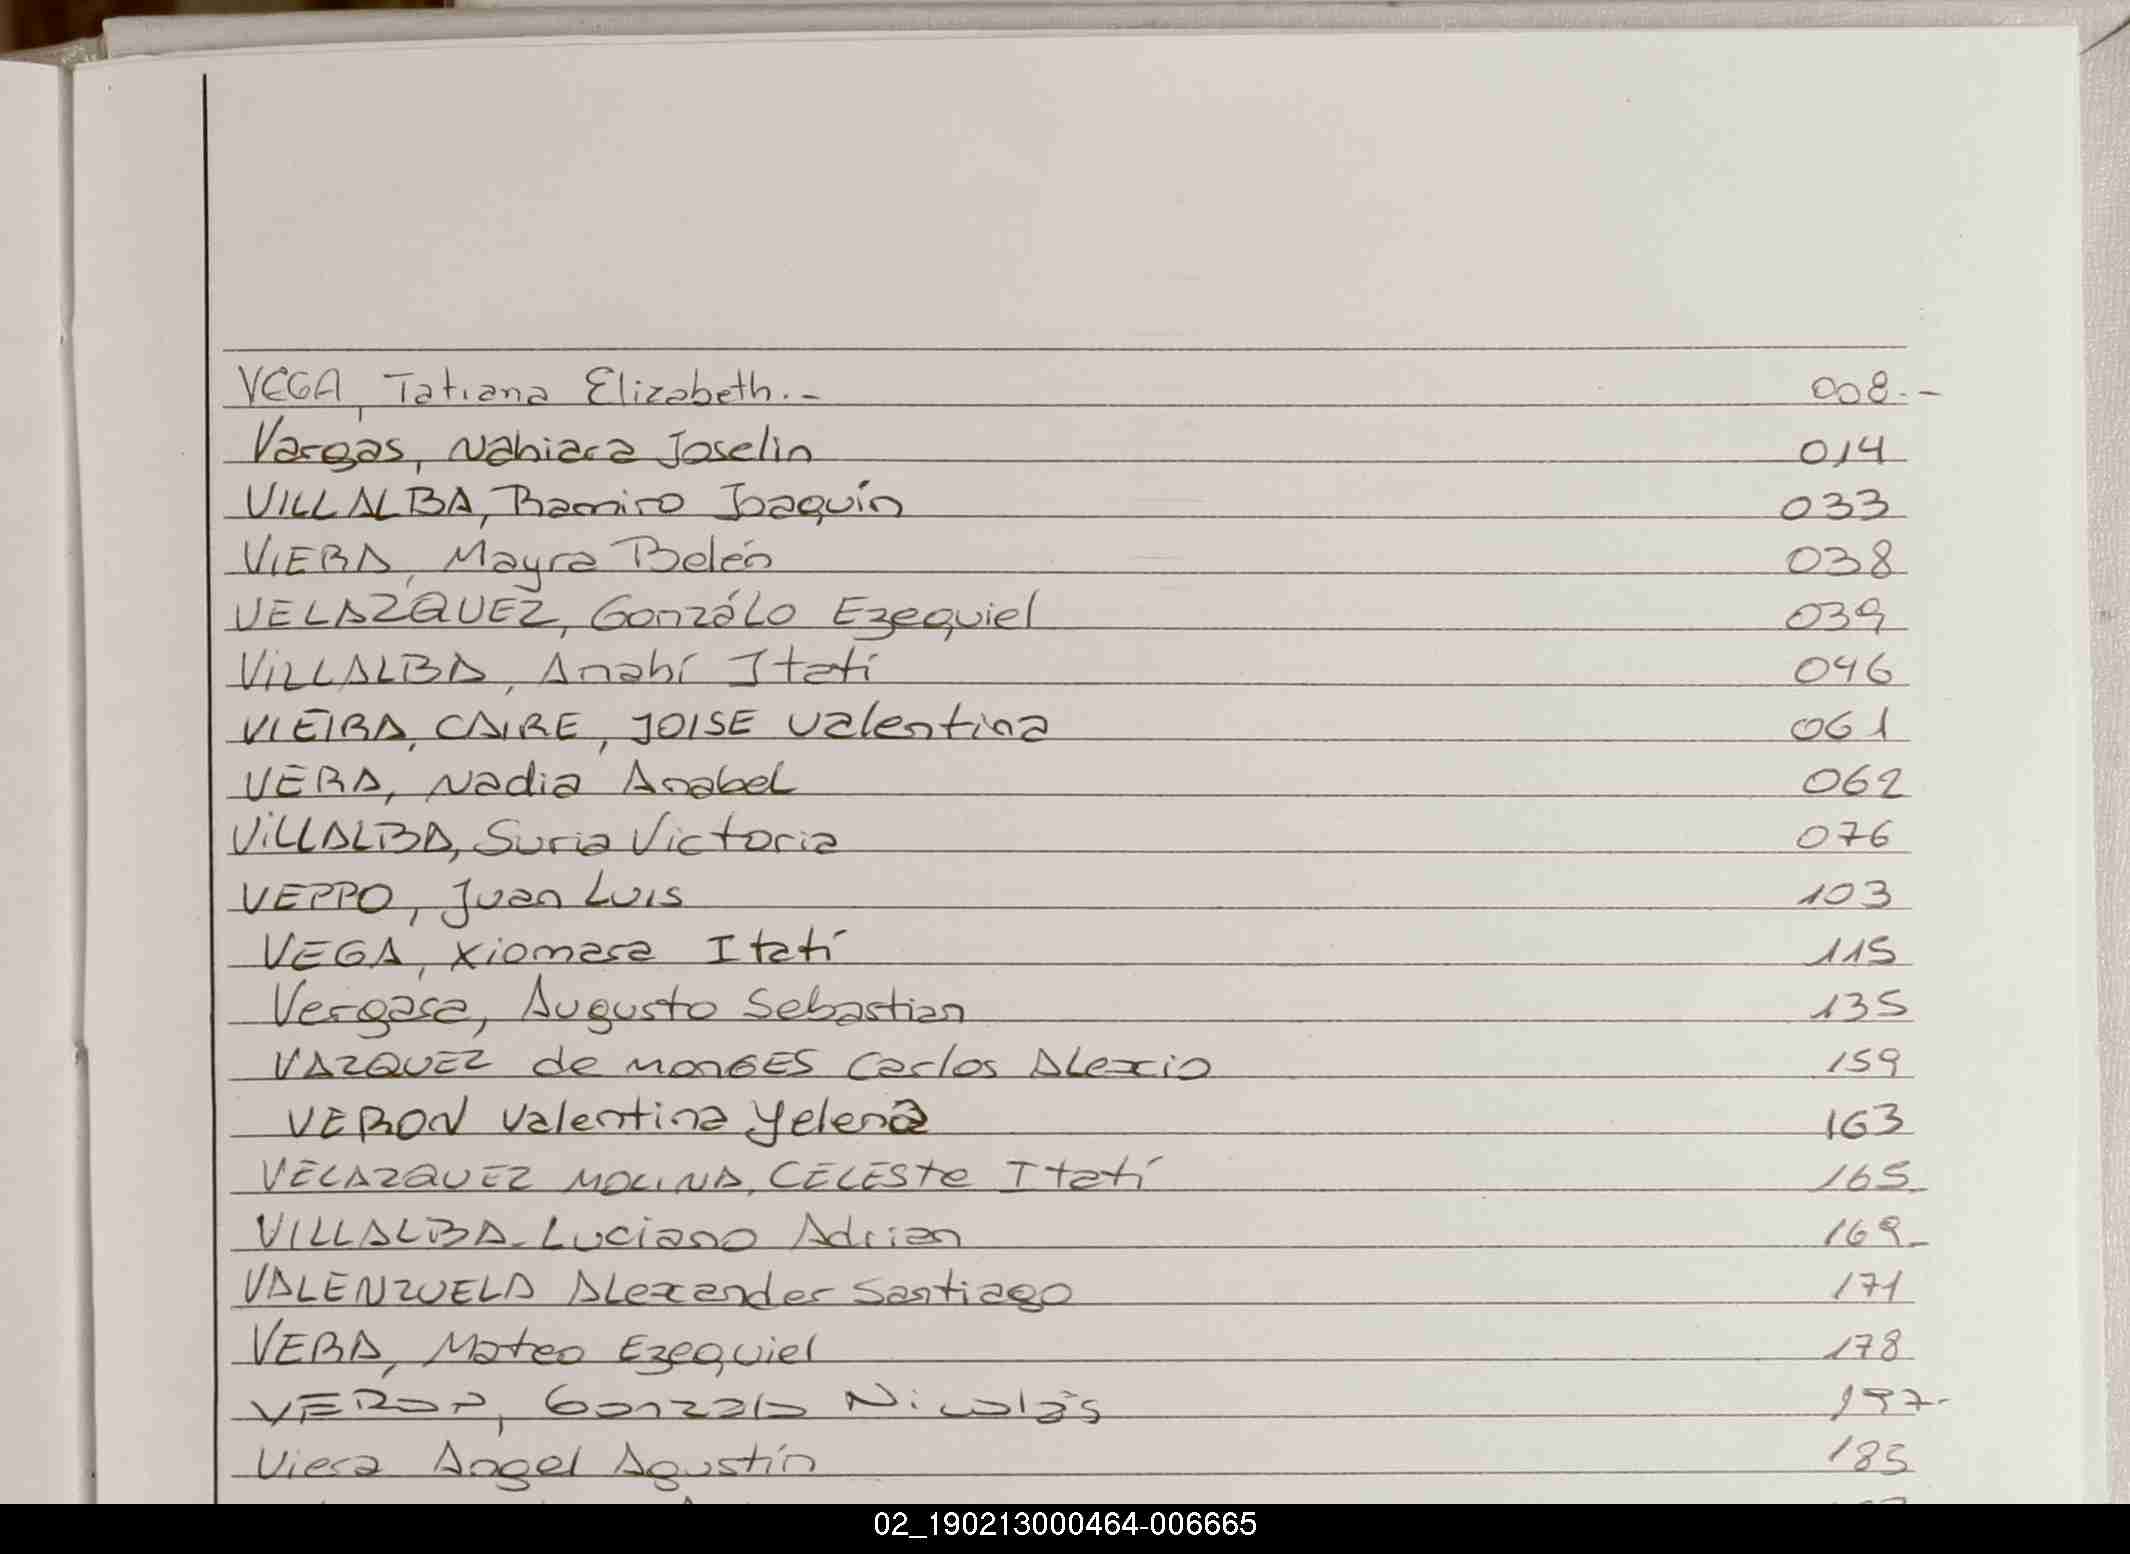 VEGA, Tatiana Elizabeth.- 008.-
Vargas, Nahiara Joselin 014
VILLALBA, Ramiro Joaquín 033
VIERA, Mayra Belén 038
VELAZQUEZ, Gonzálo Ezequiel 039
VILLALBA, Anahí Itatí 046
VIEIRA, CAIRE, JOISE Valentina 061
VERA, Nadia Anabel 062
VILLALBA, Suria Victoria 076
VEPPO, Juan Luis 103
VEGA, Xiomara Itatí 115
Vergara, Augusto Sebastian 135
VAZQUEZ de MONGES Carlos Alexio 159
VERON Valentina Yelena 163
VELAZQUEZ MOLINA, CELESte Itatí 165_
VILLALBA_ Luciano Adrian 169_
VALENZUELA Alexander Santiago 171
VERA, Mateo Ezequiel 178
Gonzalo Nicolás
Viera Angel Agustín 185
02_190213000464-006665